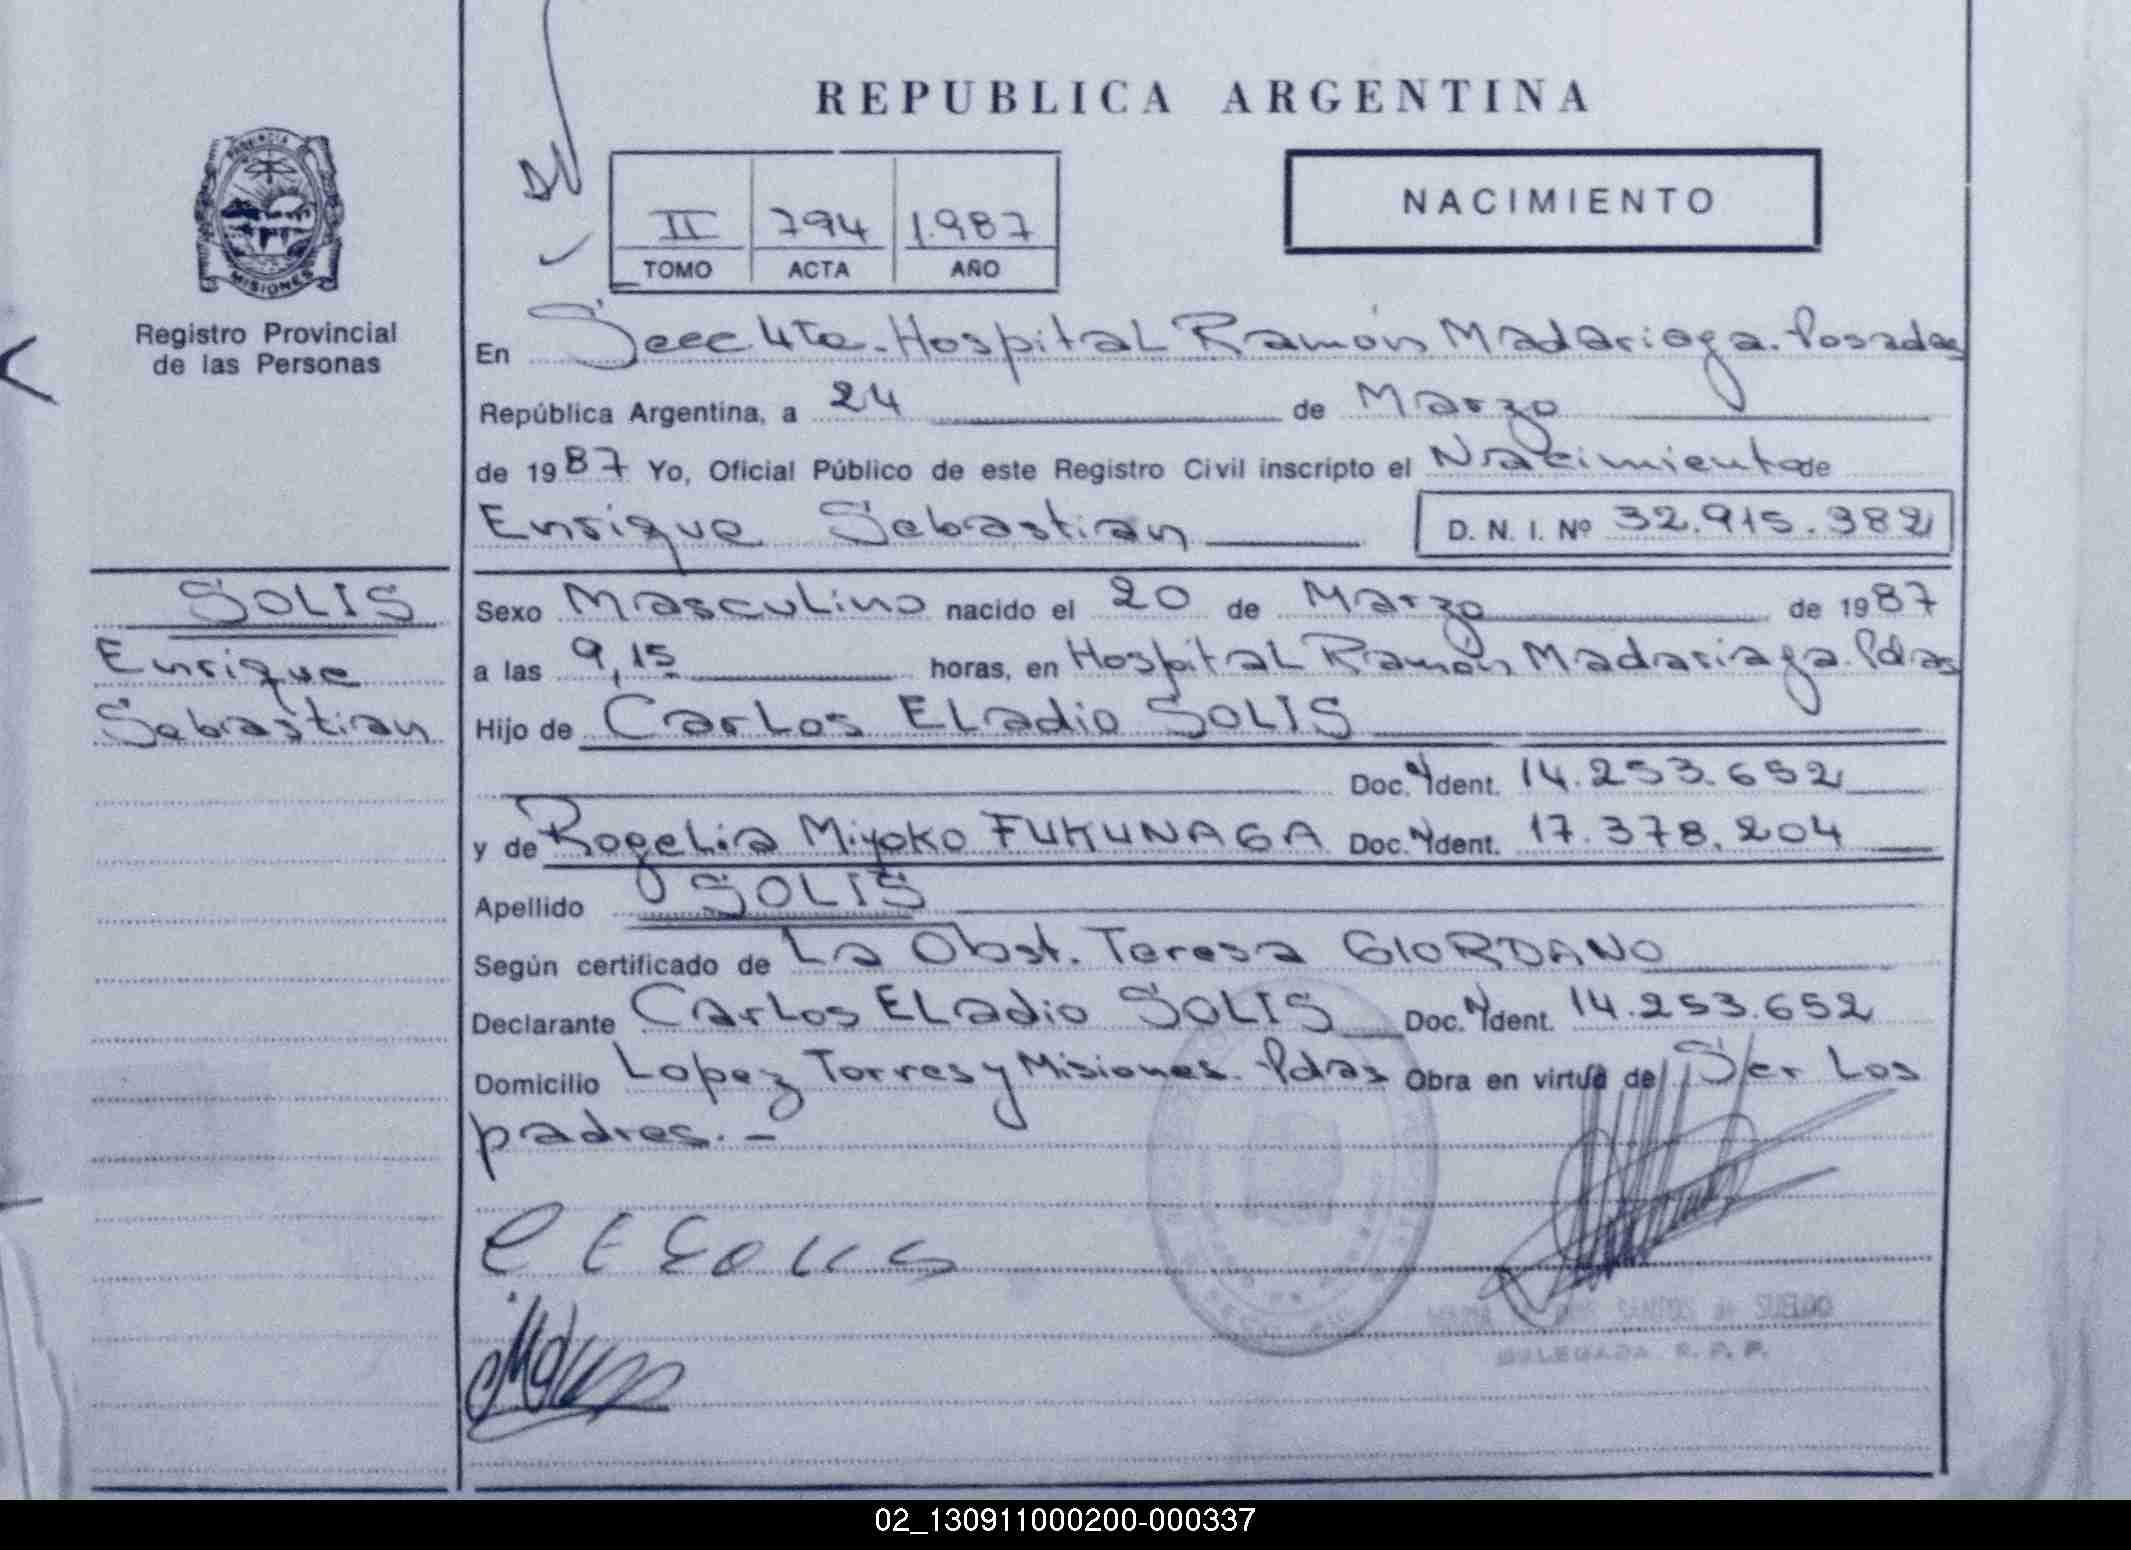 REPUBLICA ARGENTINA
PROVINCIA
MISIONES
Registro Provincial
de las Personas
II 794 1.987
TOMO ACTA AÑO
NACIMIENTO
En Secc 4ta. Hospital Ramón Madariaga. Posadas
República Argentina, a 24 de Marzo
de 1987 Yo, Oficial Público de este Registro Civil inscripto el Nacimiento de
Enrique Sebastian D. N. I. Nº 32.915.382
SOLIS
Enrique
Sebastian
Sexo Masculino nacido el 20 de Marzo de 1987
a las 9,15 horas, en Hospital Ramón Madariaga. Pdas
Hijo de Carlos Eladio SOLIS
Doc. Ident. 14.253.652
y de Rogelia Miyoko FUKUNAGA Doc. Ident. 17.378.204
Apellido SOLIS
Según certificado de La Obst. Teresa GIORDANO
Declarante Carlos Eladio SOLIS Doc. Ident. 14.253.652
Domicilio Lopez Torres y Misiones. Pdas Obra en virtud de Ser Los
padres. -
SANTOS de SUELDO
DELEGADA R. P. P.
02_130911000200-000337